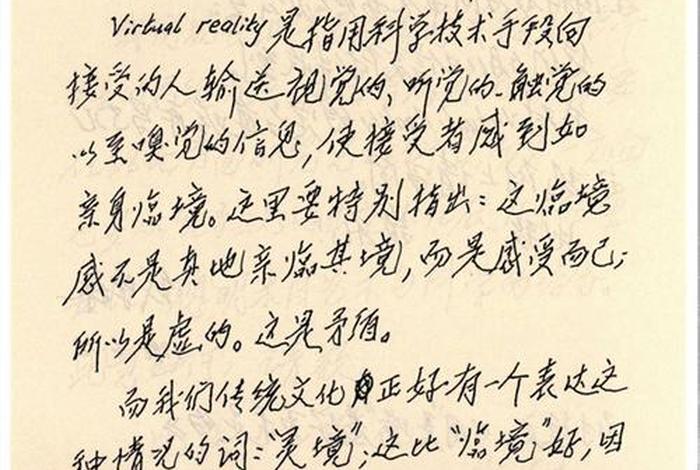 Virtual reality是指用科学技术手段向
接受的人输送视觉的、听觉的、触觉的
以至嗅觉的信息,使接受者感到如
亲身临境。这里要特别指出:这临境
感不是真地亲临其境,而是感受而已;
所以是虚的。这是矛盾。
而我们传统文化正好有一个表达这
种情况的词:“灵境”;这比“临境”好,因